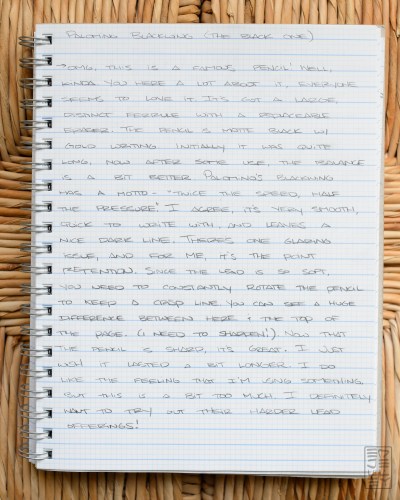 PALOMINO BLACKWING (THE BLACK ONE)
→ OMG, THIS IS A FAMOUS PENCIL! WELL,
KINDA. YOU HERE A LOT ABOUT IT, EVERYONE
SEEMS TO LOVE IT. IT'S GOT A LARGE,
DISTINCT FERRULE WITH A REPLACEABLE
ERASER. THE PENCIL IS MATTE BLACK W/
GOLD WRITING. INITIALLY IT WAS QUITE
LONG, NOW AFTER SOME USE, THE BALANCE
IS A BIT BETTER. PALOMINO'S BLACKWING
HAS A MOTTO - "TWICE THE SPEED, HALF
THE PRESSURE". I AGREE, IT'S VERY SMOOTH,
QUICK TO WRITE WITH, AND LEAVES A
NICE DARK LINE. THERE'S ONE GLARING
ISSUE, AND FOR ME, IT'S THE POINT
RETENTION. SINCE THE LEAD IS SO SOFT,
YOU NEED TO CONSTANTLY ROTATE THE PENCIL
TO KEEP A CRISP LINE. YOU CAN SEE A HUGE
DIFFERENCE BETWEEN HERE & THE TOP OF
THE PAGE. (I NEED TO SHARPEN!) NOW THAT
THE PENCIL IS SHARP, IT'S GREAT. I JUST
WISH IT LASTED A BIT LONGER. I DO
LIKE THE FEELING THAT I'M USING SOMETHING,
BUT THIS IS A BIT TOO MUCH. I DEFINITELY
WANT TO TRY OUT THEIR HARDER LEAD
OFFERINGS!